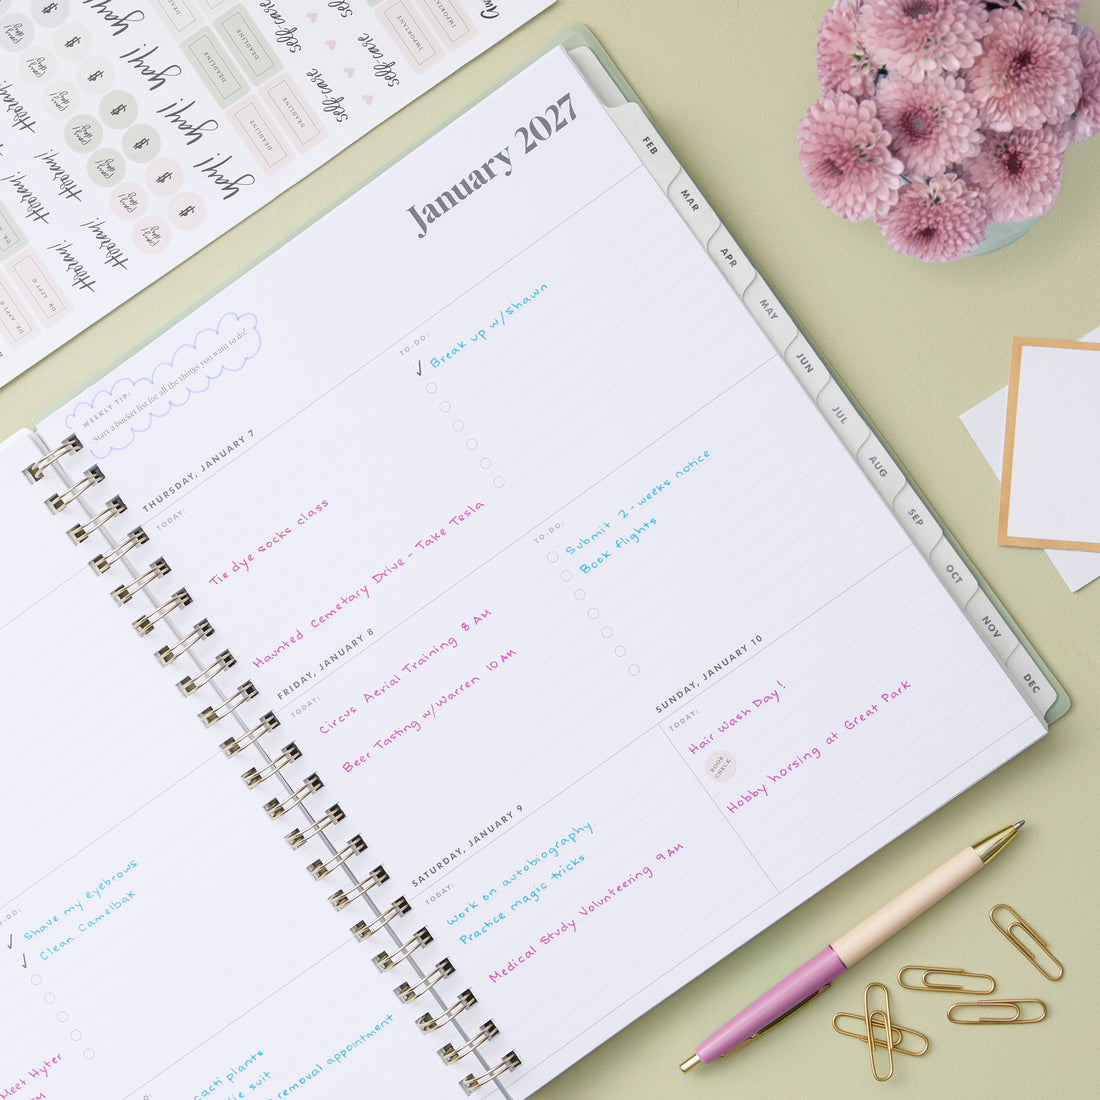 yay!
yay!
yay!
self care
self care
self care
DEADLINE
DEADLINE
DEADLINE
DEADLINE
IMPORTANT
IMPORTANT
$
$
$
$
$
$
Hooray!
Hooray!
Hooray!
Hooray!
DR. APPT @
DR. APPT @
January 2027
FEB
MAR
APR
MAY
JUN
JUL
AUG
SEP
OCT
NOV
DEC
WEEKLY TIP:
Start a bucket list for all the things you want to do!
THURSDAY, JANUARY 7
TODAY:
Tie dye socks class
Haunted Cemetary Drive - Take Tesla
TO-DO:
✓ Break up w/ shawn
FRIDAY, JANUARY 8
TODAY:
Circus Aerial Training 8 AM
Beer Tasting w/ Warren 10 AM
TO-DO:
Submit 2-weeks notice
Book flights
SATURDAY, JANUARY 9
TODAY:
Work on autobiography
Practice magic tricks
Medical Study Volunteering 9 AM
SUNDAY, JANUARY 10
TODAY:
Hair Wash Day!
BOOK CHECK
Hobby horsing at Great Park
✓ Shave my eyebrows
✓ Clean Camelbak
Meet Hyter
cacti plants
suit
removal appointment